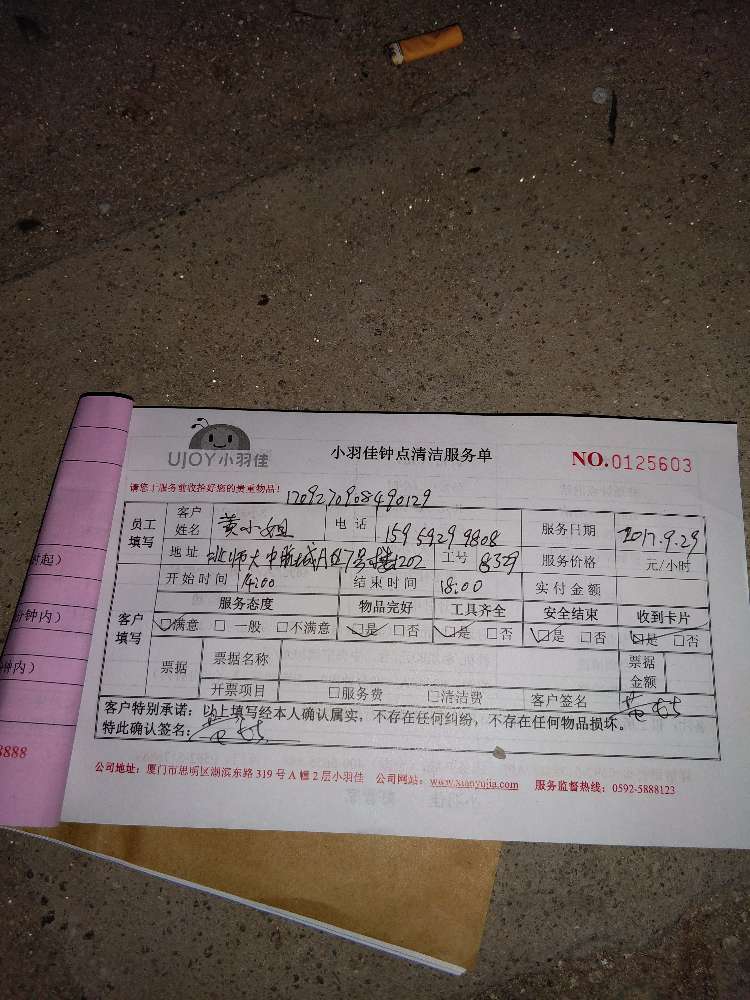 UJOY小羽佳 小羽佳钟点清洁服务单 NO.0125603
请您于服务前收拾好您的贵重物品! 1709270908490129
员工填写 客户姓名 黄小姐 电话 159 5929 9808 服务日期 2017.9.29
时起) 地址 A区7号楼1202 工号 8329 服务价格 元/小时
开始时间 14:00 结束时间 18:00 实付金额
客户填写 服务态度 物品完好 工具齐全 安全结束 收到卡片
分钟内) ☑满意 □一般 □不满意 ☑是 □否 ☑是 □否 ☑是 □否 ☑是 □否
钟内) 票据 票据名称 票据金额
开票项目 □服务费 □清洁费 客户签名
客户特别承诺:以上填写经本人确认属实,不存在任何纠纷,不存在任何物品损坏。
特此确认签名:
8888
公司地址:厦门市思明区湖滨东路 319 号 A 幢 2 层小羽佳 公司网站:www.xiaoyujia.com 服务监督热线:0592-5888123